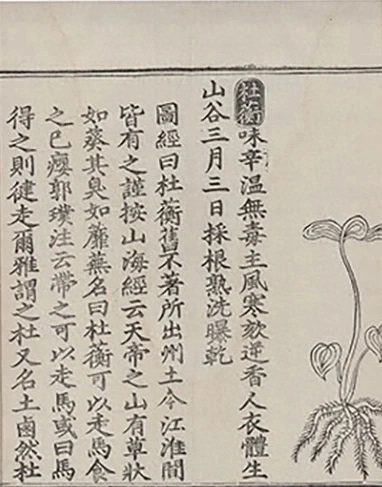 杜衡味辛温無毒主風寒欬逆香人衣體生
山谷三月三日採根熟洗曝乾
圖經曰杜蘅舊不著所出州土今江淮間
皆有之謹按山海經云天帝之山有草狀
如葵其臭如蘼蕪名曰杜蘅可以走馬食
之已癭郭璞注云帶之可以走馬或曰馬
得之則健走爾雅謂之杜又名土鹵然杜